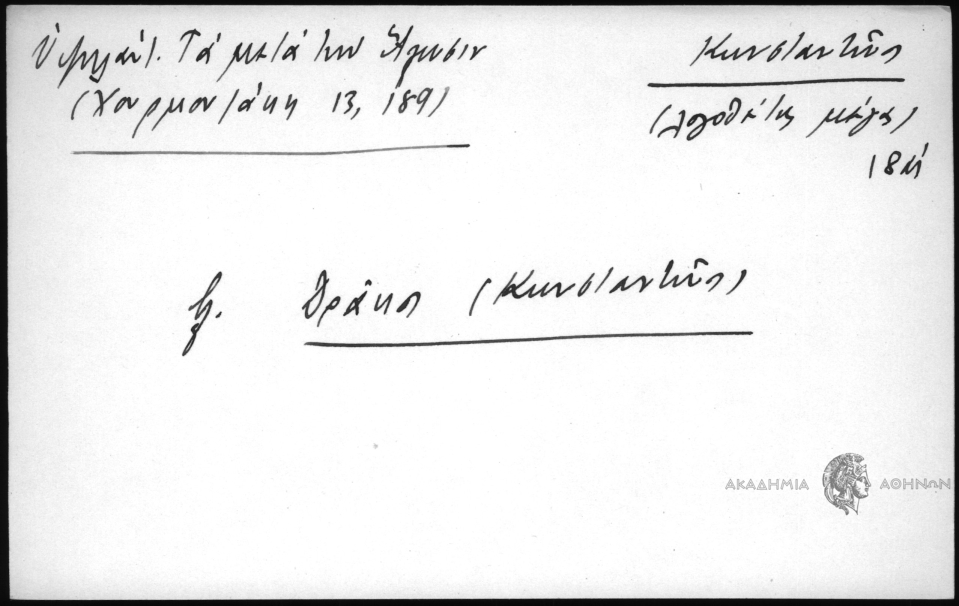 Ὑψηλάντ. Τὰ μετὰ τὴν Ἅλωσιν
(Χουρμουζάκη 13, 189)
Κωνσταντῖνος
(Λογοθέτης μέγας)
18
Δράκος (Κωνσταντῖνος)
ΑΚΑΔΗΜΙΑ ΑΘΗΝΩΝ